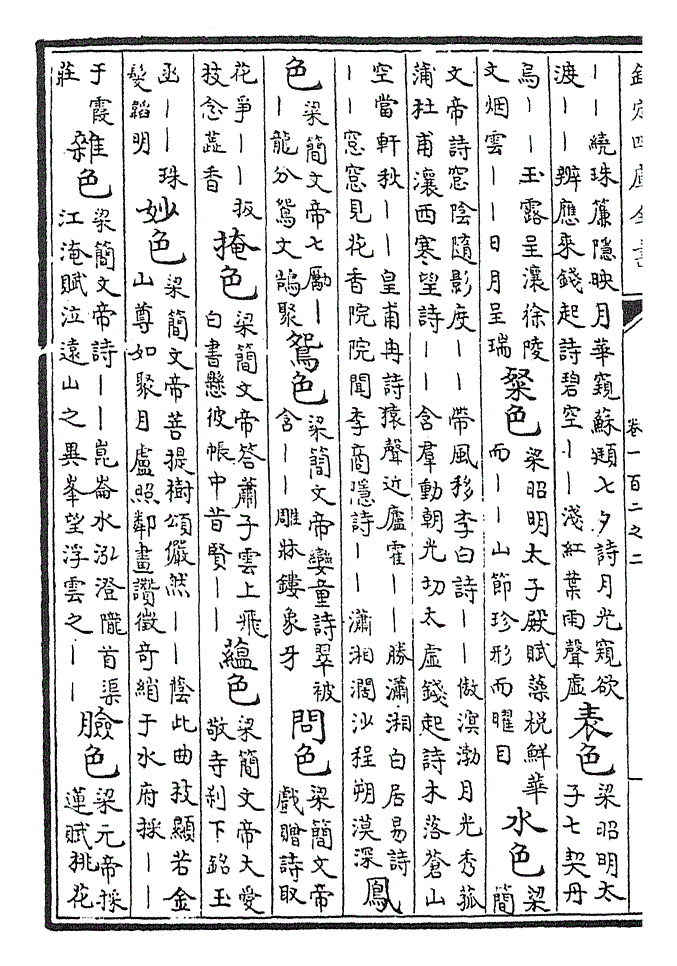 欽定四庫全書 卷一百二之二
——繞珠簾隱映月華窺蘇頲七夕詩月光窺欲
渡——辨應來錢起詩碧空——淺紅葉雨聲虛
表色
梁昭明太
子七契丹
烏——玉露呈瀼徐陵
文烟雲——日月呈瑞
粲色
梁昭明太子殿賦藻梲鮮華
而——山節珍形而曜目
水色
梁
簡
文帝詩窓陰隨影度——帶風移李白詩——傲溟渤月光秀菰
蒲杜甫瀼西寒望詩——含羣動朝光切太虛錢起詩木落蒼山
空當軒秋——皇甫冉詩猿聲近廬霍——勝瀟湘白居易詩
——窓窓見花香院院聞李商隱詩——瀟湘濶沙程朔漠深
鳳
色
梁簡文帝七勵—
—龍分鴛文鵠聚
鴛色
梁簡文帝孌童詩翠被
含——雕牀鏤象牙
問色
梁簡文帝
戲贈詩取
花爭——扳
枝念蕋香
掩色
梁簡文帝答蕭子雲上飛
白書懸彼帳中昔賢——
蘊色
梁簡文帝大愛
敬寺刹下銘玉
函——珠
髮韜明
妙色
梁簡文帝菩提樹頌儼然——蔭此曲枝顯若金
山尊如聚月盧照鄰畫讚徵奇綃于水府採——
于霞
莊
雜色
梁簡文帝詩——崑崙水泓澄隴首渠
江淹賦泣遠山之異峯望浮雲之——
臉色
梁元帝採
蓮賦桃花